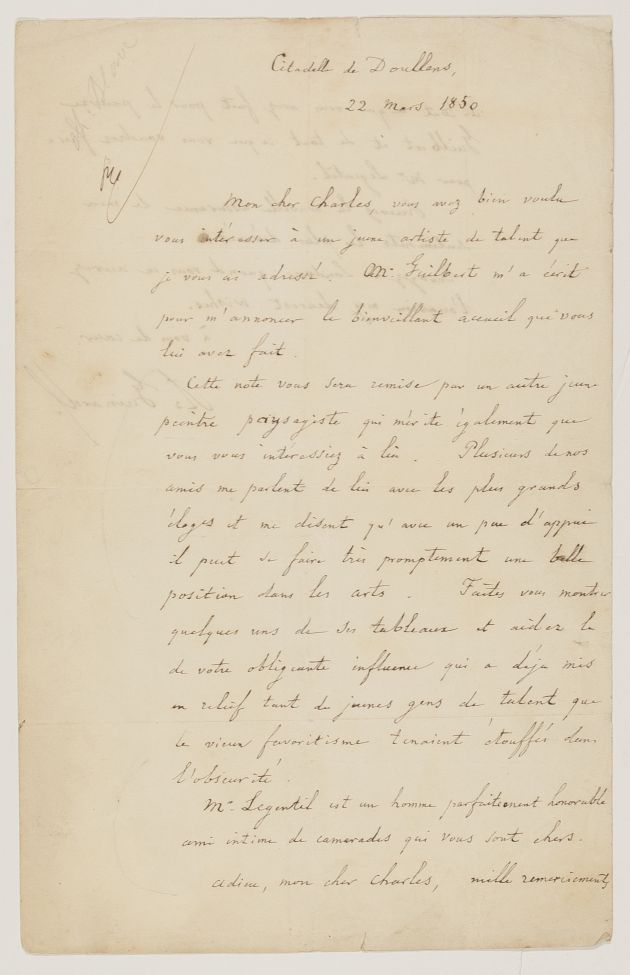 Citadelle de Doullens,
22 Mars 1850
Mon cher Charles, vous avez bien voulu
vous intéresser à un jeune artiste de talent que
je vous ai adressé. Mr Guilbert m'a écrit
pour m'annoncer le bienveillant accueil que vous
lui avez fait.
Cette note vous sera remise par un autre jeune
peintre paysagiste qui mérite également que
vous vous intéressiez à lui. Plusieurs de nos
amis me parlent de lui avec les plus grands
éloges et me disent qu'avec un peu d'appui
il peut se faire très promptement une belle
position dans les arts. Faites vous montrer
quelques uns de ses tableaux et aidez le
de votre obligeante influence qui a déjà mis
en relief tant de jeunes gens de talent que
le vieux favoritisme tenaient étouffés dans
l'obscurité.
Mr Legentil est un homme parfaitement honorable
ami intime de camarades qui vous sont chers.
adieu, mon cher Charles, mille remerciements